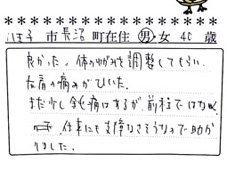 八王子市長沼町在住 男 女 40歳
良かった。体のゆがみを調整してもらい、
右肩の痛みがひいた。
まだ少し鈍痛はあるが、前程ではない。
仕事にも支障なさそうなので助か
りました。